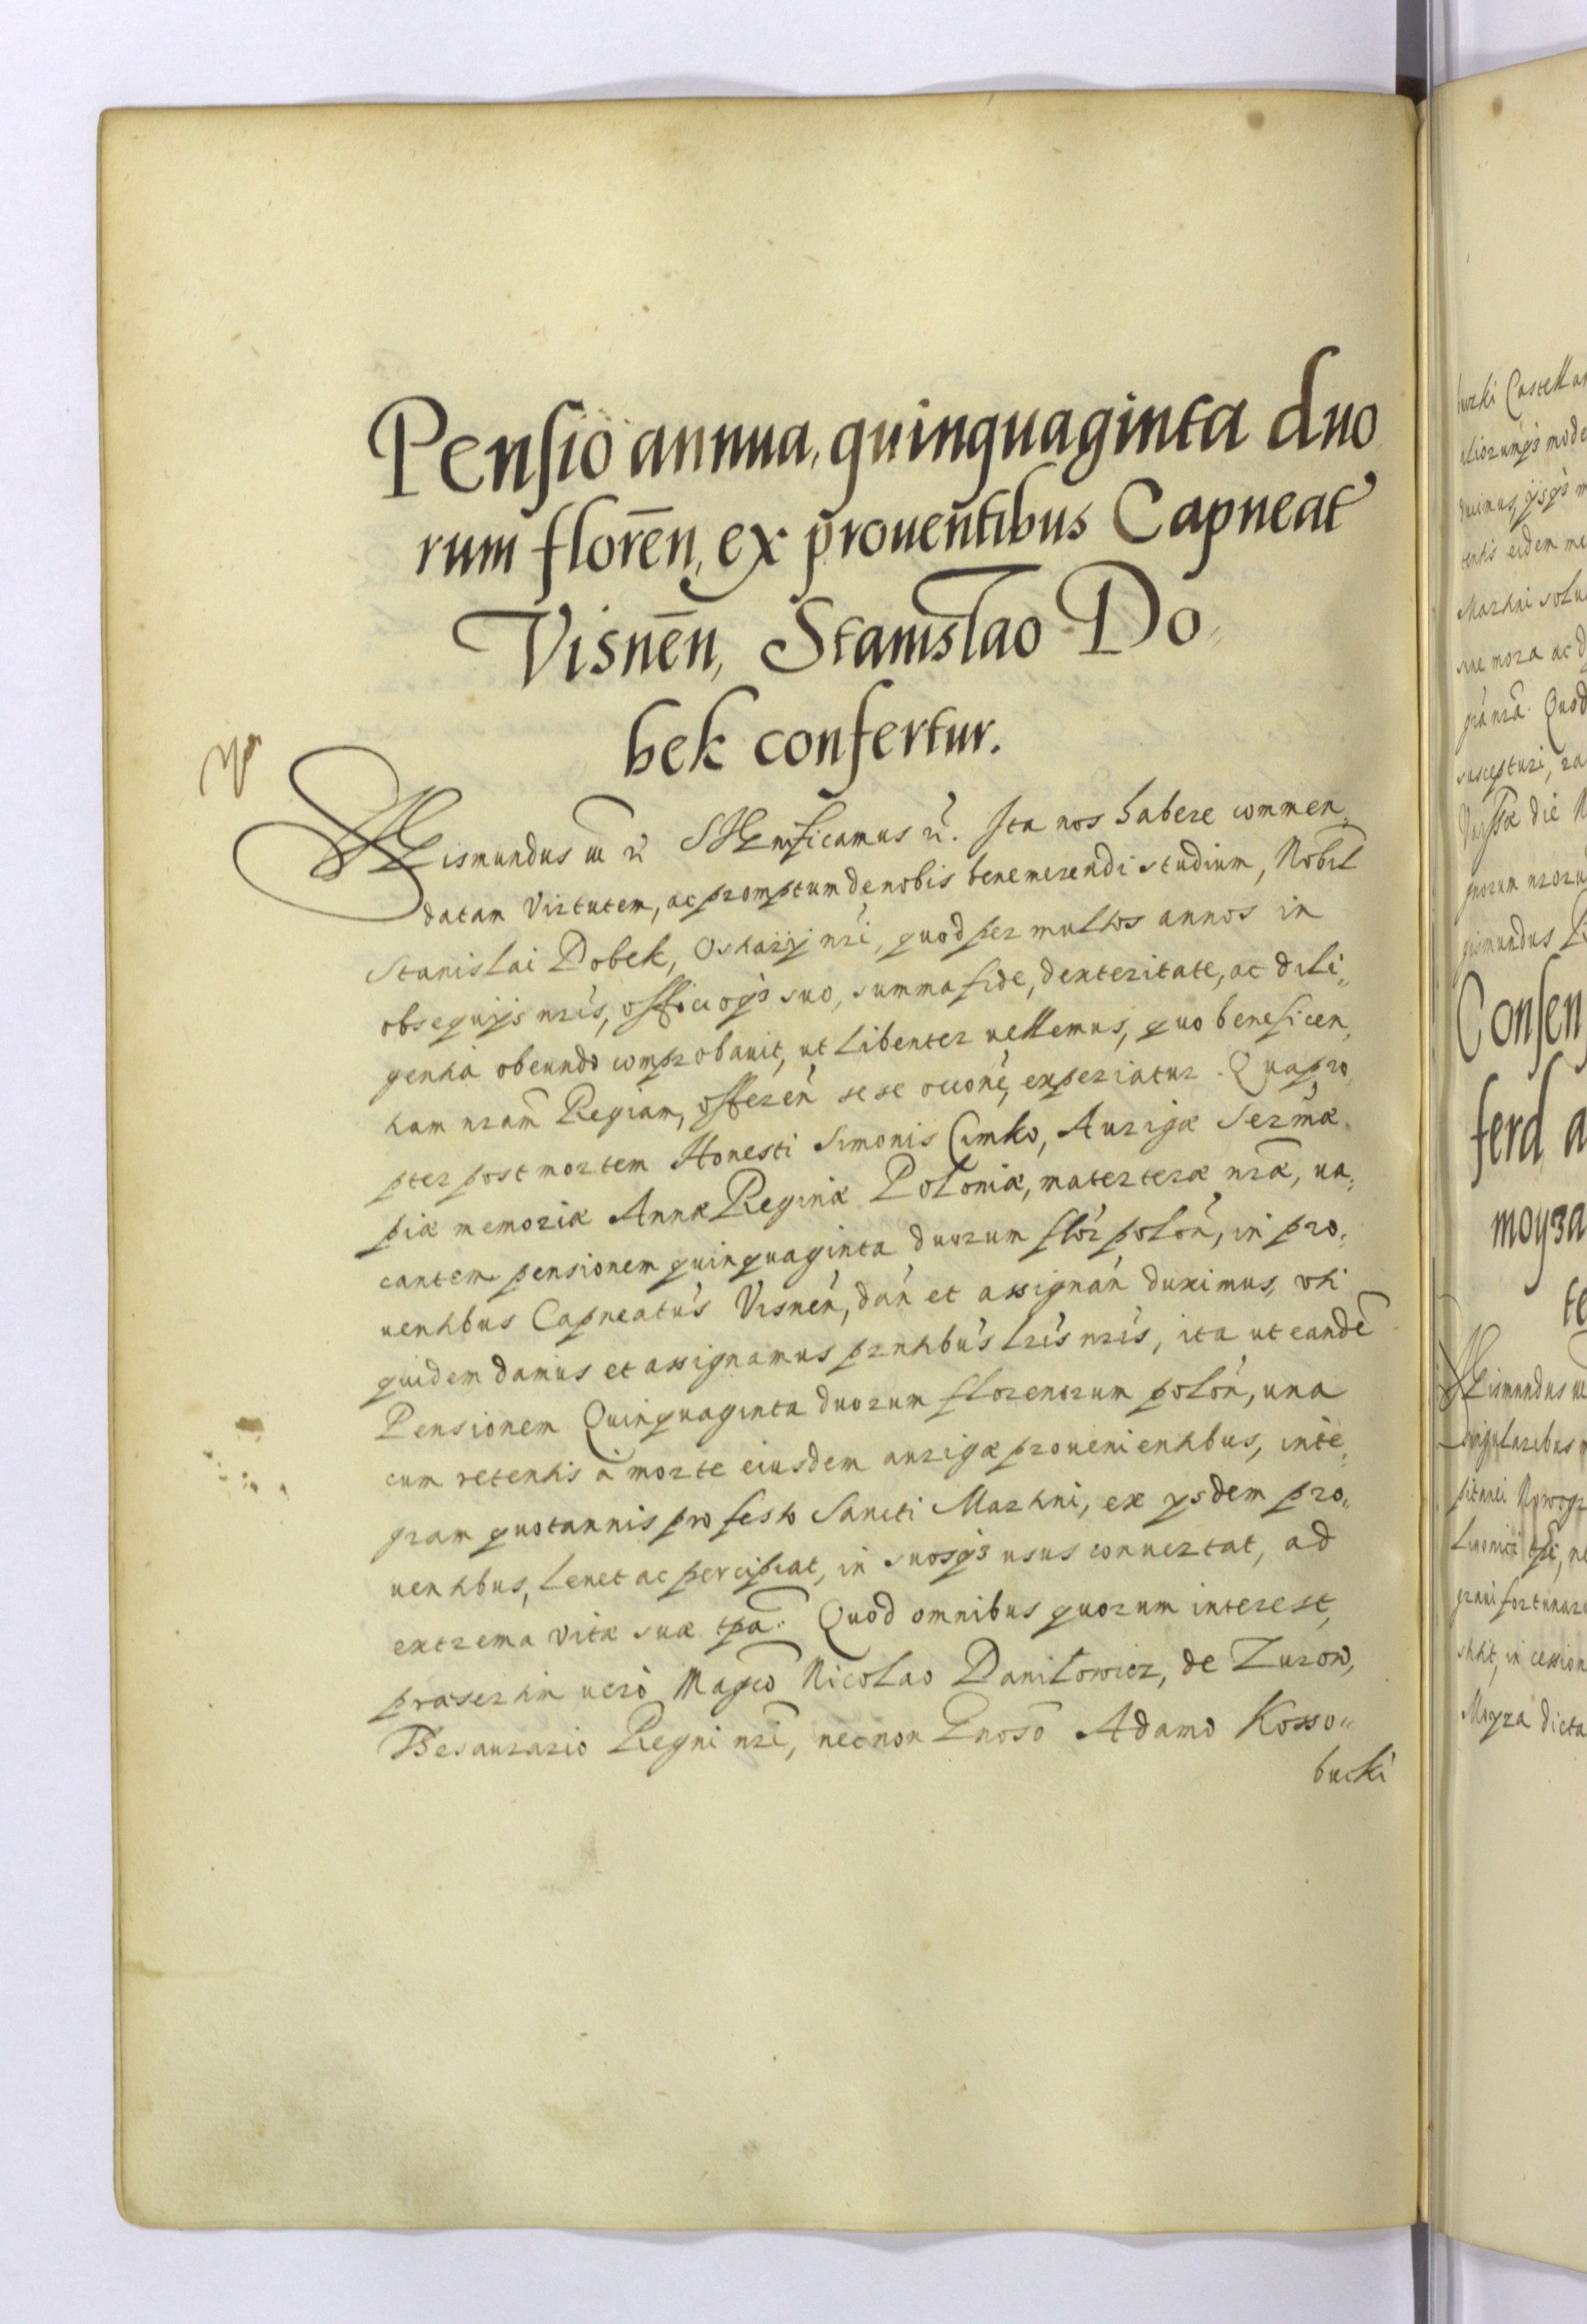 Pensio annua, quinquaginta duo
rum floreñ, ex prouentibus Capneat
Visneñ, Stanislao Do,,
bek confertur.
Sigismundus III etc Significamus etc. Ita nos habere commen,
datam Virtutem, ac promptum de nobis benemerendi studium, Nobil
Stanislai Dobek, Ostiarij nri, quod per multos annos in
obsequijs nris, officioqs suo, summa fide, dexteritate, ac dili,
gentia obeundo comprobauit, ut libenter uellemus, quo beneficen,
tiam nram Regiam, offereñ sese occone, experiatur. Quapro,
pter post mortem Honesti Simonis Cimko, Aurigæ Sermæ
piæ memoriæ Annæ Reginæ Poloniæ, materteræ nræ, ua,
cantem pensionem quinquaginta duorum flor poloñ, in pro,
uentibus Capneatus Visneñ, dañ et assignañ duximus, uti
quidem damus et assignamus pntibus lris nris, ita ut eande
Pensionem Quinquaginta duorum florenorum poloñ, una
cum retentis à morte eiusdem aurigæ prouenientibus, inte,
gram quotannis pro festo Sancti Martini, ex ysdem pro,
uentibus, leuet ac percipiat, in suosqs usus conuertat, ad
extrema vitæ suæ tpa. Quod omnibus quorum interest,
præsertim uerò Magco Nicolao Danilowicz, de Zurow,
Thesaurario Regni nri, necnon Gnoso Adamo Kosso,,
bucki